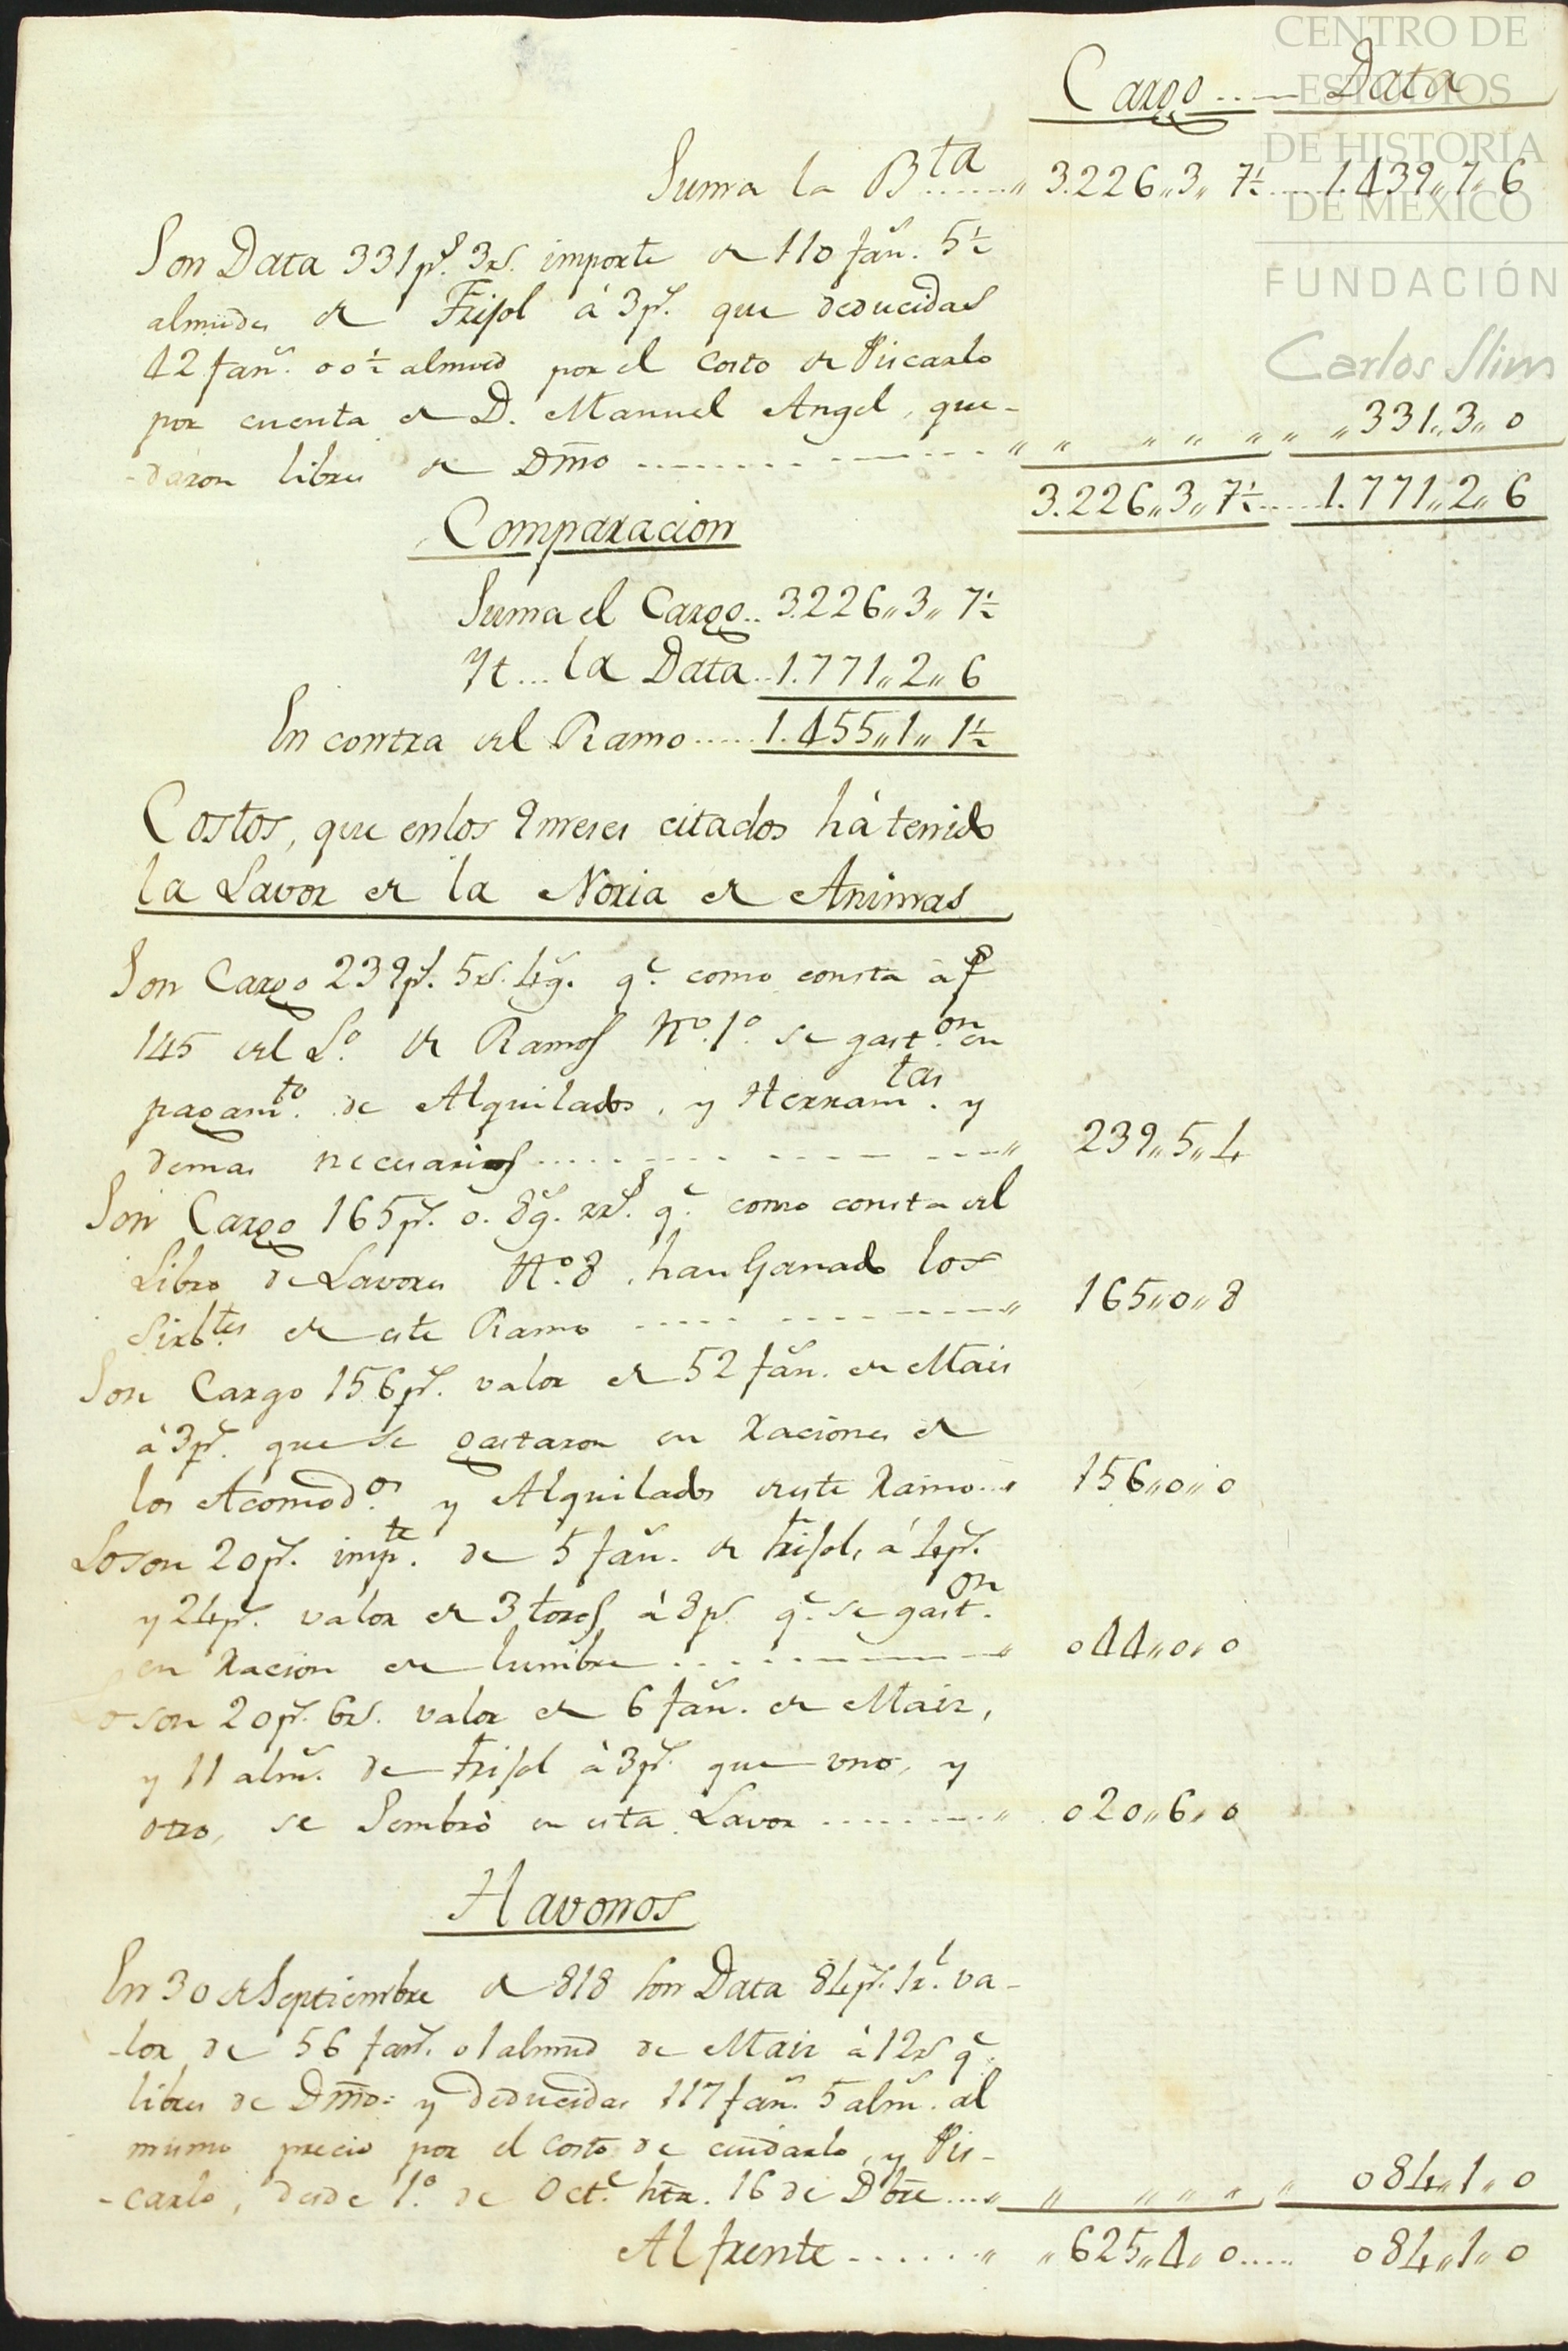 CENTRO DE
ESTUDIOS
DE HISTORIA
DE MÉXICO
FUNDACIÓN
Carlos Slim
Cargo ..... Data
Suma la B.ta ...... 3.226,,3,, 7½ ..... 1.439,,7,, 6
Son Data 331ps. 3rs. importe de 110 fan.s 5½
almudes de Frisol à 3ps. que deducidas
42 fan.s 00½ almud por el costo de Piscarlo
por cuenta de D. Manuel Angel, que-
-daron libres de Dmo ........ ,, ,, ,, ,, ,, ,, ,, 331,,3,, 0
3.226,,3,, 7½ ..... 1.771,,2,, 6
Comparacion
Suma el Cargo .. 3.226,,3,, 7½
Yt ... la Data .. 1.771,,2,, 6
En contra del Ramo ..... 1.455,,1,, 1½
Costos, que en los 9 meses citados hà tenido
la Lavor de la Noria de Animas
Son Cargo 239ps. 5rs. 4g.s q.e como consta à f
145 del L.o de Ramos N.o 1.o se gast.on en
pagam.to de Alquilados, y Herram.tas y
demas necesarios ........ ,, 239,,5,, 4
Son Cargo 165ps. 0. 8g.s rr.s q.e como consta del
Libro de Lavores N.o 8, han Ganado los
Sirb.tes de este Ramo ........ ,, 165,,0,, 8
Son Cargo 156ps. valor de 52 fan.s de Mais
à 3ps. que se gastaron en Raciones de
los Acomod.os y Alquilados deste Ramo ... 156,,0,, 0
Loson 20ps. imp.te de 5 fan.s de frisol, à 4ps.
y 24ps. valor de 3 toros à 8ps q.e se gast.on
en Racion de lumbre ........ ,, 044,,0,, 0
Loson 20ps. 6rs. valor de 6 fan.s de Maiz,
y 11 alm.s de frisol à 3ps. que uno, y
otro, se Sembrò en esta Lavor ........ ,, 020,,6,, 0
Havonos
En 30 de Septiembre de 818 son Data 84ps. 1r.l va-
-lor de 56 fan.s 01 almud de Maiz à 12rs q.e
libres de Dmo: y deducidas 117 fan.s 5 alm.s al
mismo precio por el costo de cuidarlo, y Pis-
-carlo, desde 1.o de Oct.e hta. 16 de Dbre .... ,, ,, ,, ,, ,, ,, 084,,1,, 0
Al frente ...... ,, ,, 625,,4,, 0 ..... 084,,1,, 0